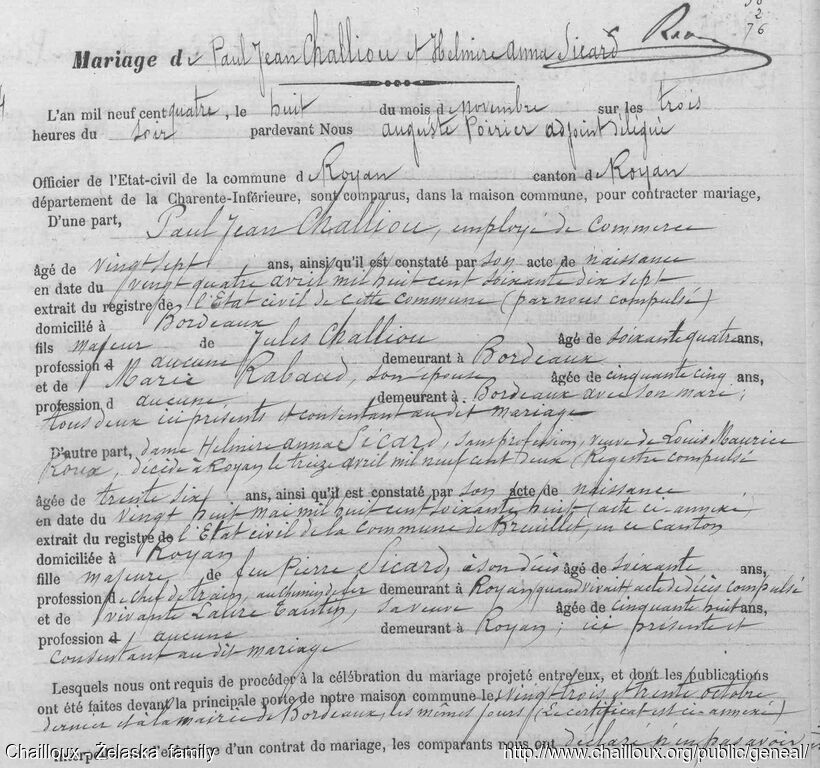 2
76
Mariage de Paul Jean Challiou et Helmire Anna Sicard
L'an mil neuf cent quatre, le huit du mois de novembre sur les trois
heures du soir pardevant Nous Auguste Poirier adjoint délégué
Officier de l'Etat-civil de la commune de Royan canton de Royan
département de la Charente-Inférieure, sont comparus, dans la maison commune, pour contracter mariage,
D'une part, Paul Jean Challiou, employé de commerce
âgé de vingt sept ans, ainsi qu'il est constaté par son acte de naissance
en date du vingt quatre avril mil huit cent soixante dix sept
extrait du registre de l'Etat civil de cette commune (par nous compulsé)
domicilié à Bordeaux
fils majeur de Jules Challiou âgé de soixante quatre ans,
profession d aucune demeurant à Bordeaux
et de Marie Rabaud, son épouse âgée de cinquante cinq ans,
profession d aucune demeurant à Bordeaux avec son mari;
tous deux ici présents et consentant au dit mariage
D'autre part, dame Helmire Anna Sicard, sans profession, veuve de Louis Maurice
Roux, décédé à Royan le treize avril mil neuf cent deux (Registre compulsé
âgée de trente six ans, ainsi qu'il est constaté par son acte de naissance
en date du vingt huit mai mil huit cent soixante huit (acte ci-annexé)
extrait du registre de l'Etat civil de la commune de Breuillet, en ce canton
domiciliée à Royan
fille majeure de feu Pierre Sicard, à son décès âgé de soixante ans,
profession de chef de train, au chemin de fer demeurant à Royan (quand vivait, acte de décès compulsé
et de vivante Laure Tantin, sa veuve âgée de cinquante huit ans,
profession d aucune demeurant à Royan; ici présente et
consentant au dit mariage
Lesquels nous ont requis de procéder à la célébration du mariage projeté entre eux, et dont les publications
ont été faites devant la principale porte de notre maison commune les vingt trois et trente octobre
dernier et à la mairie de Bordeaux, les mêmes jours (Le certificat est ci-annexé)
d'un contrat du mariage, les comparants nous ont déclaré n'en pas avoir
Chailloux - Zelaska family http://www.chailloux.org/public/geneal/